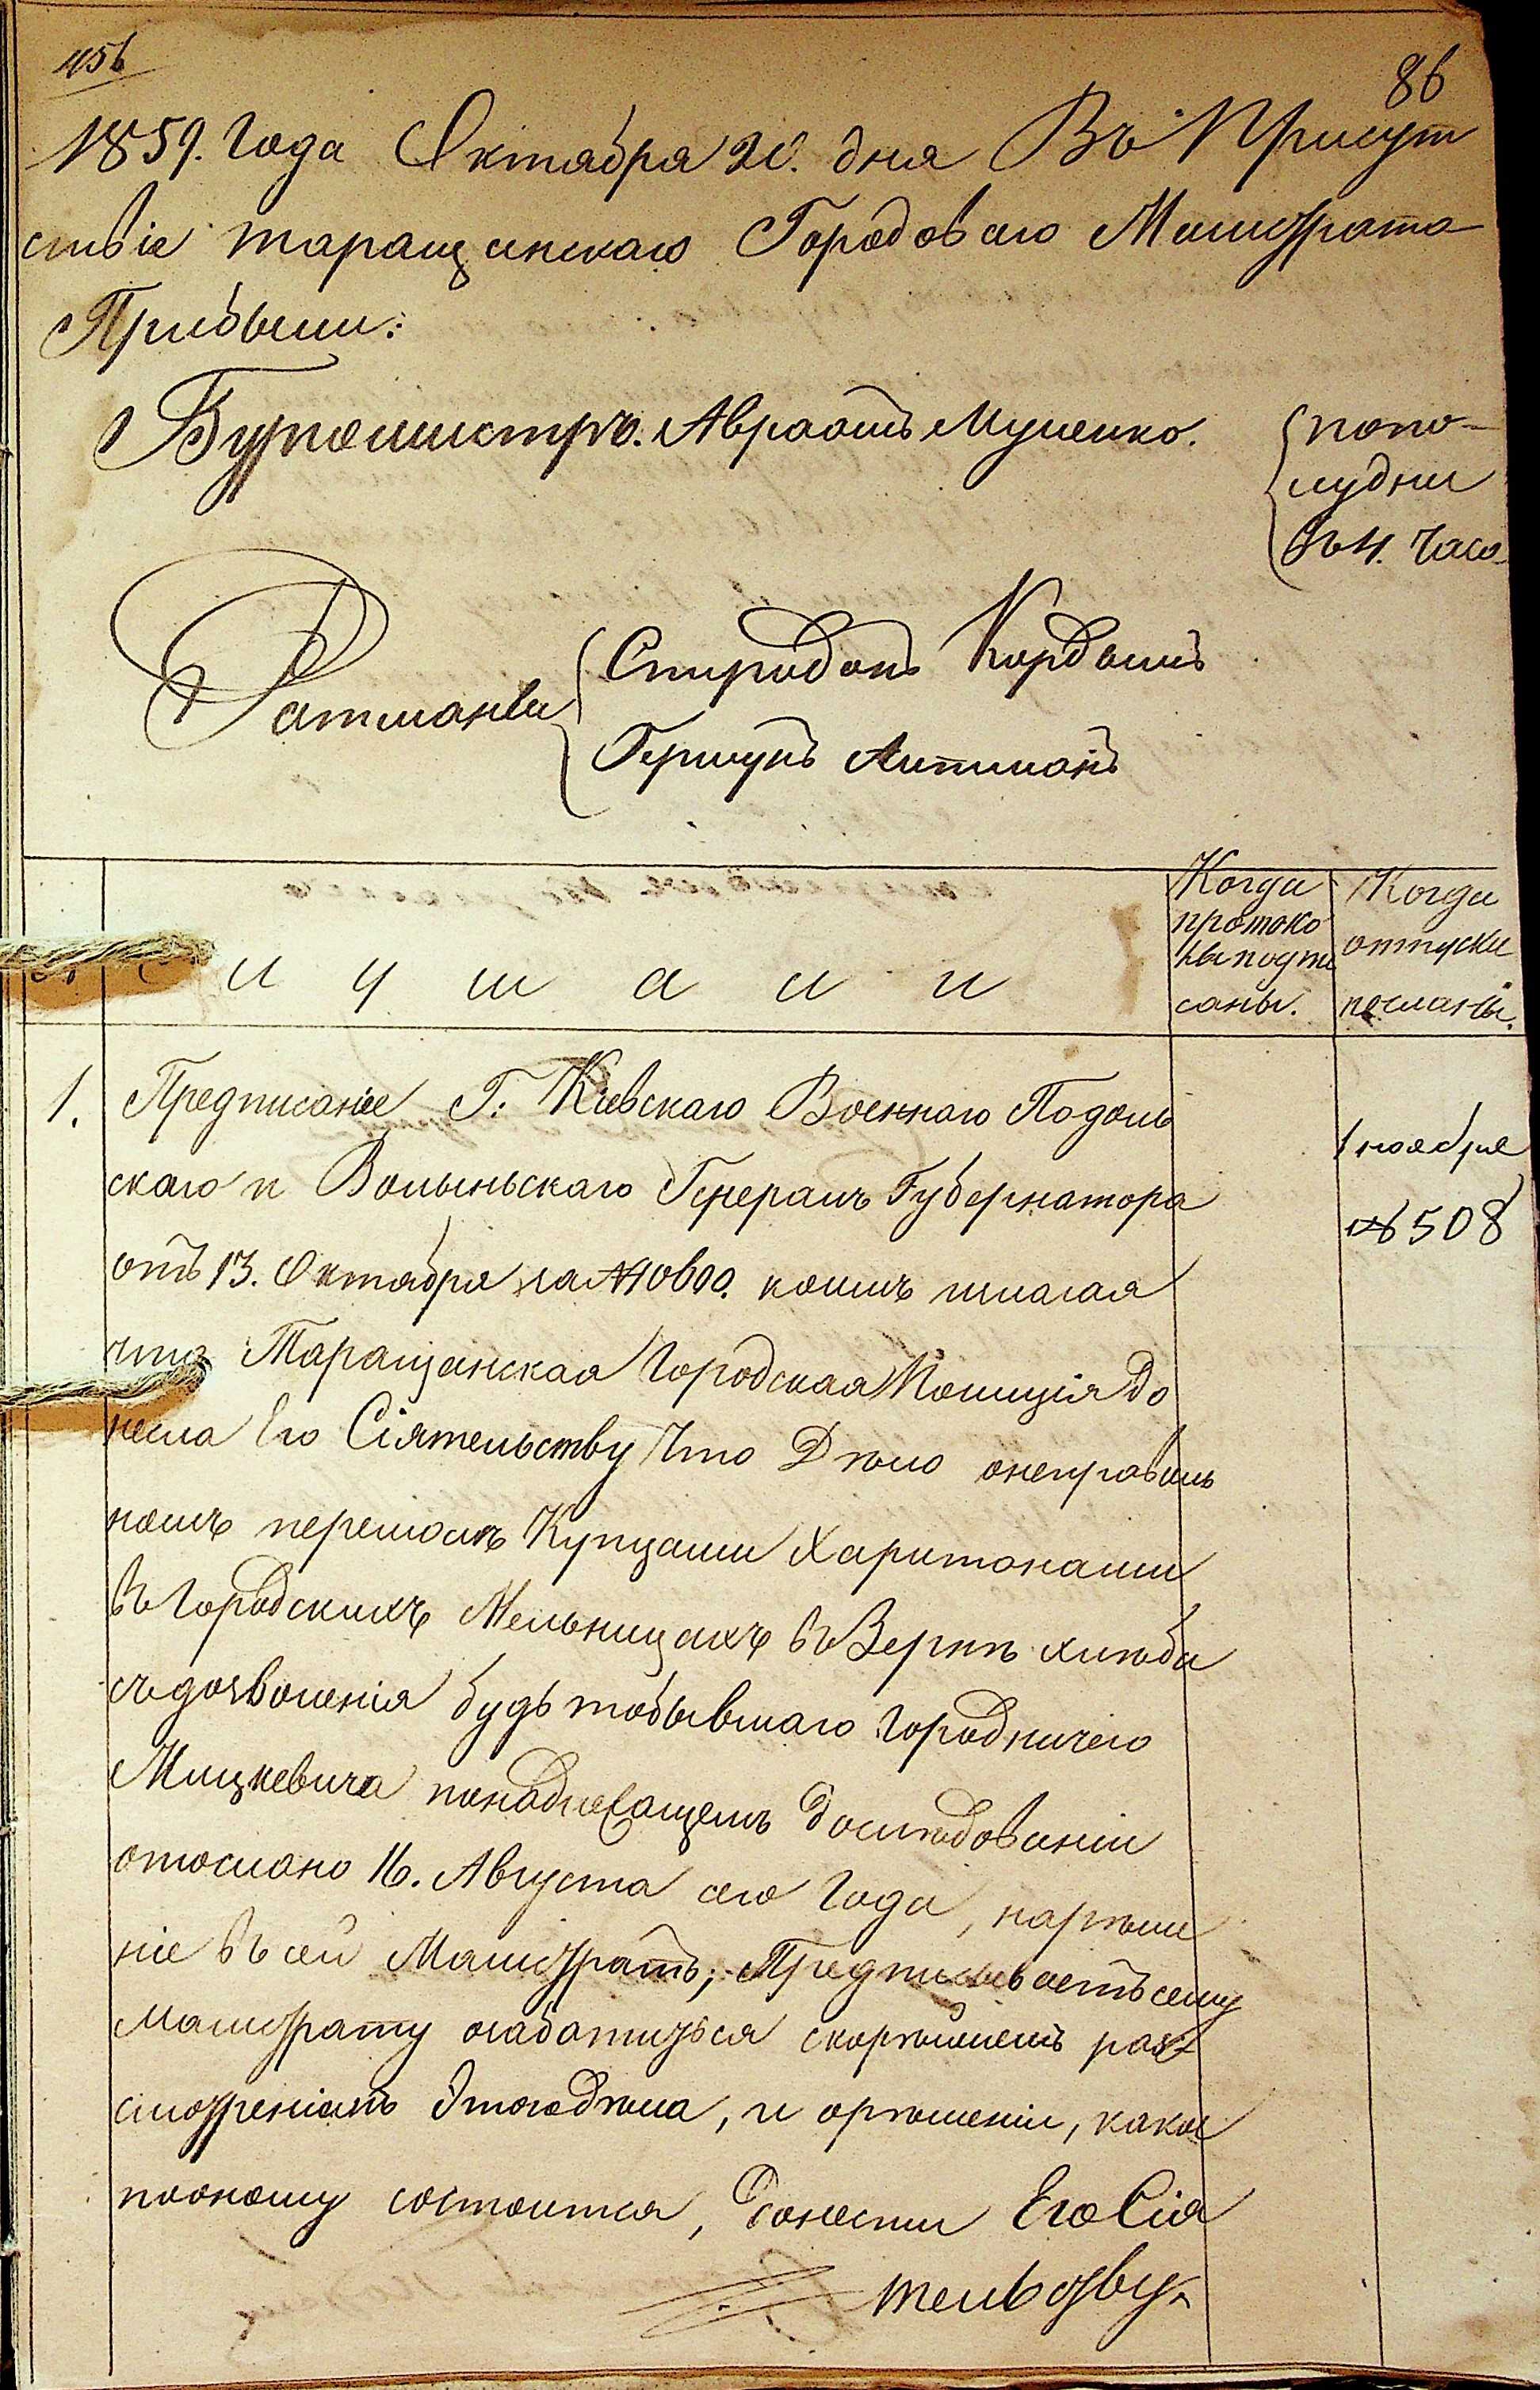 456
86
1859. Года Октября 20. дня Въ Присут
ствіе таращанскаго Городоваго Магистрата
Прибыли:
Бургомистръ. Авраамъ Мученко.
{попо-
лудни
въ 4. часа
Ратманы
Спиридонъ Кордышъ
Гершунъ Литманъ
С л у ш а л и
Когда
протоко
лы подпи
саны.
Когда
отпуски
посланы.
1. Предписаніе Г: Кіевскаго Военнаго Подоль
скаго и Волыньскаго Генералъ Губернатора
отъ 13. Октября за № 10600. коимъ изъясняя
что Таращанская Городская Полиція до
несла Его Сіятельству что Дѣло онеправиль
номъ перемолѣ Купцами Харитонами
въ Городскихъ Мельницахъ въ Зернѣ хлѣба
съ дозволенія будьтобывшаго городничего
Мицкевича понадлежащемъ дослѣдованіи
отослано 16. Августа сего Года, нарѣше
ніе въ сей Магистратъ; Предписываетъ сему
Магистрату озаботиться скорѣйшемъ раз
смотреніемъ Этогодѣла, и орѣшеніи, какое
поономy состоится, донести Его Сія
тельству.
1 ноября
№ 508